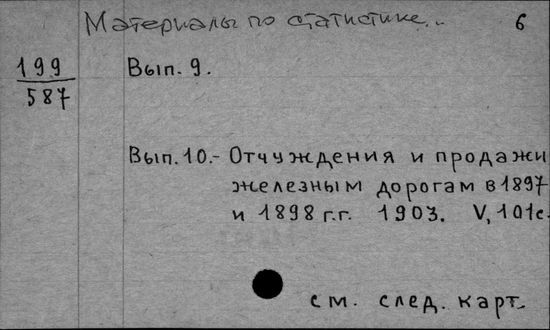 Материалы по статистике... 6
199
587
Вып. 9.
Вып. 10.- Отчуждения и продажи
железным дорогам в 1897
и 1898 г.г. 1903. V, 101с.
см. след. карт.